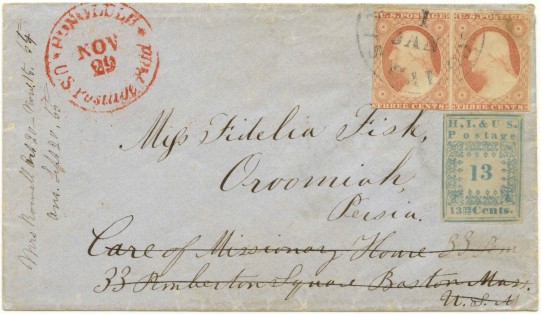 HONOLULU
NOV
29
U.S. Postage Paid
1
JAN
U.S. POSTAGE
THREE CENTS.
U.S. POSTAGE
THREE CENTS.
H.I. & U.S.
Postage
13
13 Cents.
Miss Fidelia Fisk,
Oroomiah,
Persia.
Care of Missionary House 33 Pem
33 Pemberton Square Boston Mass.
U.S.A
Mrs Rowell Oct 20
Ans. Sept 20, 65